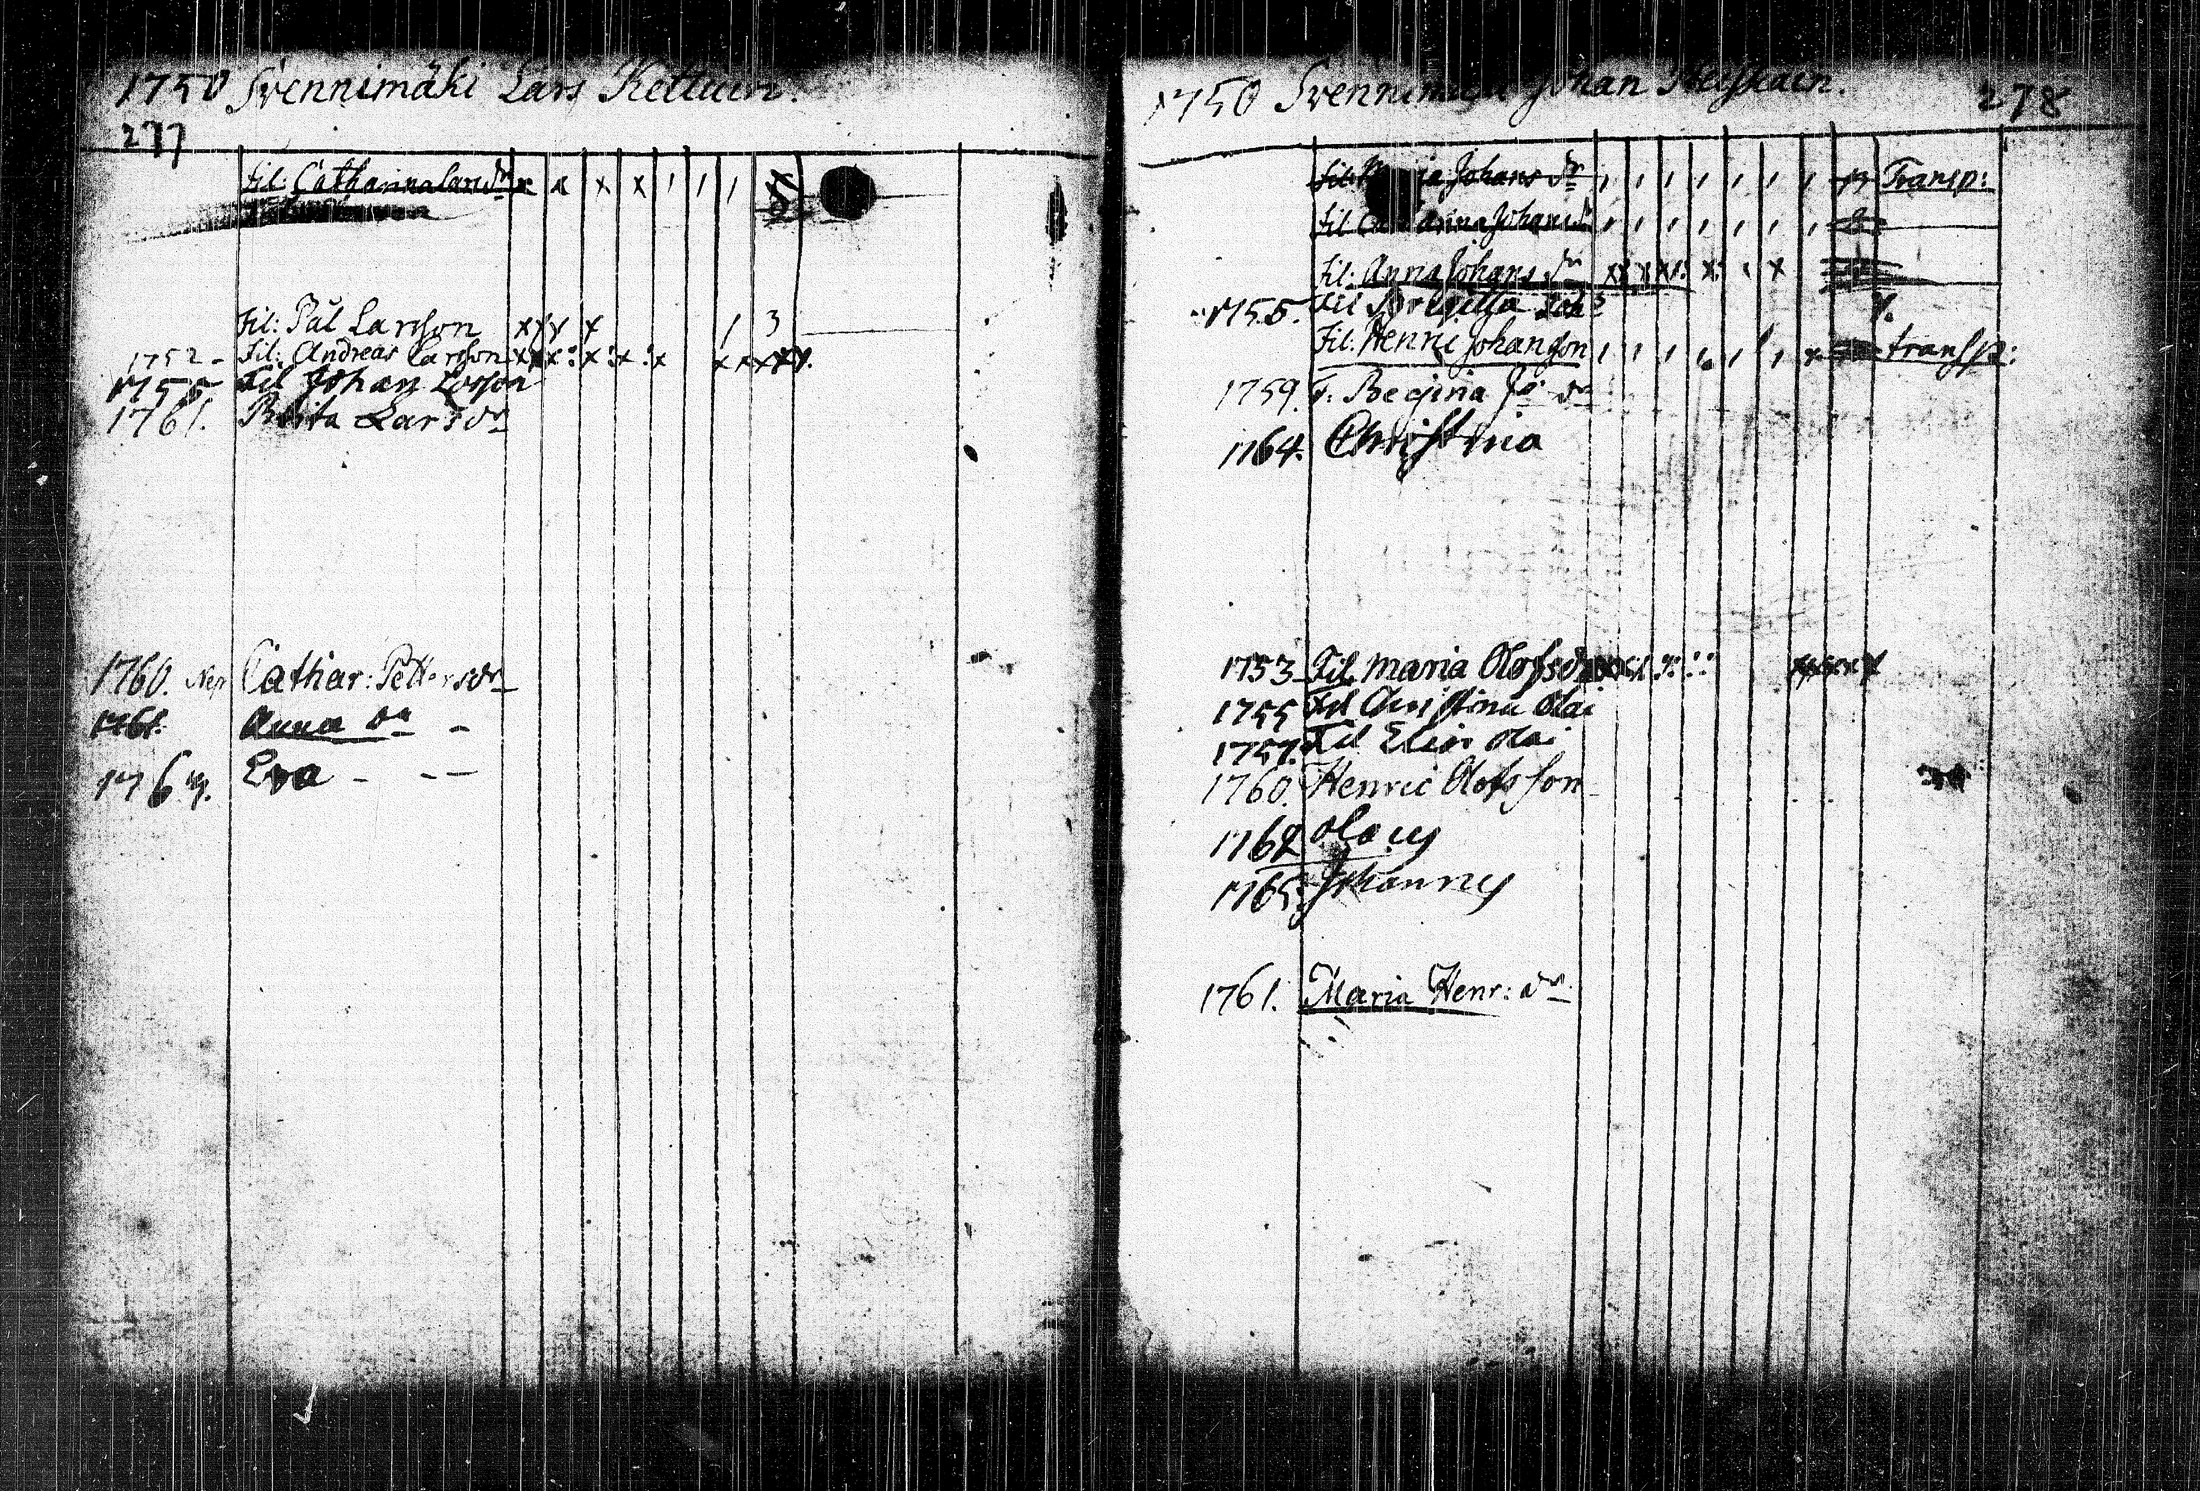 1750 Svennimäki Lars Kettuin.
277
Fil: Catharina Lars dr x x x x / / /
Fil: Pål Larsson x x x x / 3
1752 - Fil: Andreas Larsson
1755 Fil Johan Larsson
1761. Brita Lars dr
1760. Nep Cathar: Petters dr
1761. Anna dr -
1767. Eva - - -
1750 Johan Heiskain. 278
Fil: Johans dr / / / / / / / Transp:
Fil: Johans dr / / / / / / /
Fil: Anna Johans dr
1755. Fil Brigitta Joh
Fil: Henric Johansson / / / / / / x transp:
1759. F. Regina Jo: dr
1764. Christina
1753 Fil Maria Olofsdr
1755 Fil Christina Olai
1757. Fil Elin Olai
1760. Henric Olofsson
1762 Olaus
1765. Johannes
1761. Maria Henr: dr